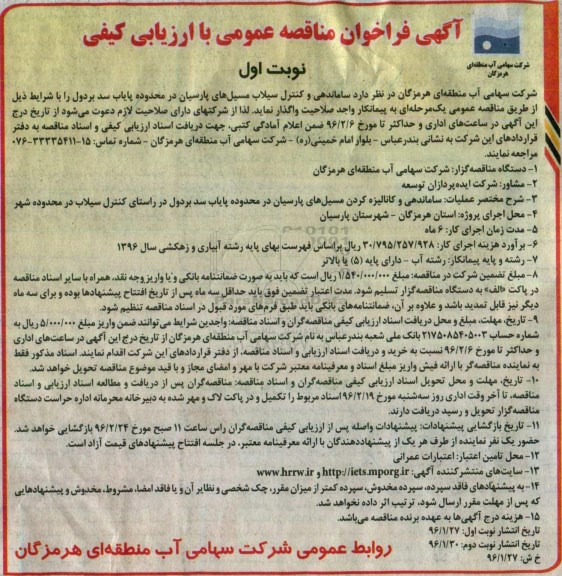 آگهی فراخوان مناقصه عمومی با ارزیابی کیفی
نوبت اول
شرکت سهامی آب منطقه‌ای
هرمزگان
شرکت سهامی آب منطقه‌ای هرمزگان در نظر دارد ساماندهی و کنترل سیلاب مسیل‌های پارسیان در محدوده پایاب سد بردول را با شرایط ذیل
از طریق مناقصه عمومی یک‌مرحله‌ای به پیمانکار واجد صلاحیت واگذار نماید. لذا از شرکتهای دارای صلاحیت لازم دعوت می‌شود از تاریخ درج
این آگهی در ساعت‌های اداری و حداکثر تا مورخ ۹۶/۲/۶ ضمن اعلام آمادگی کتبی، جهت دریافت اسناد ارزیابی کیفی و اسناد مناقصه به دفتر
قراردادهای این شرکت به نشانی بندرعباس - بلوار امام خمینی(ره) - شرکت سهامی آب منطقه‌ای هرمزگان - شماره تماس: ۱۵-۳۳۳۳۵۴۱۱-۰۷۶
مراجعه نمایند.
۱- دستگاه مناقصه‌گزار: شرکت سهامی آب منطقه‌ای هرمزگان
۲- مشاور: شرکت ایده‌پردازان توسعه
۳- شرح مختصر عملیات: ساماندهی و کانالیزه کردن مسیل‌های پارسیان در محدوده پایاب سد بردول در راستای کنترل سیلاب در محدوده شهر
۴- محل اجرای پروژه: استان هرمزگان - شهرستان پارسیان
۵- مدت زمان اجرای کار: ۶ ماه
۶- برآورد هزینه اجرای کار: ۳۰/۷۹۵/۲۵۷/۹۲۸ ریال براساس فهرست بهای پایه رشته آبیاری و زهکشی سال ۱۳۹۶
۷- رشته و پایه پیمانکار: رشته آب - دارای پایه (۵) یا بالاتر
۸- مبلغ تضمین شرکت در مناقصه: مبلغ ۱/۵۴۰/۰۰۰/۰۰۰ ریال است که باید به صورت ضمانتنامه بانکی و یا واریز وجه نقد، همراه با سایر اسناد مناقصه
در پاکت «الف» به دستگاه مناقصه‌گزار تسلیم شود. مدت اعتبار تضمین فوق باید حداقل سه ماه پس از تاریخ افتتاح پیشنهادها بوده و برای سه ماه
دیگر نیز قابل تمدید باشد و علاوه بر آن، ضمانتنامه‌های بانکی باید طبق فرم‌های مورد قبول در اسناد مناقصه تنظیم شود.
۹- تاریخ، مهلت، مبلغ و محل دریافت اسناد ارزیابی کیفی مناقصه‌گران و اسناد مناقصه: واجدین شرایط می‌توانند ضمن واریز مبلغ ۵/۰۰۰/۰۰۰ ریال به
شماره حساب ۲۱۷۵۰۸۵۴۰۵۰۰۳ بانک ملی شعبه بندرعباس به نام شرکت سهامی آب منطقه‌ای هرمزگان از تاریخ درج این آگهی در ساعت‌های اداری
و حداکثر تا مورخ ۹۶/۲/۶ نسبت به خرید و دریافت اسناد ارزیابی و اسناد مناقصه، از دفتر قراردادهای این شرکت اقدام نمایند. اسناد مذکور فقط
به نماینده مناقصه‌گر با ارائه فیش واریز مبلغ اسناد و معرفینامه معتبر شرکت با مهر و امضای مجاز و با قید موضوع مناقصه تحویل خواهد شد.
۱۰- تاریخ، مهلت و محل تحویل اسناد ارزیابی کیفی مناقصه‌گران و اسناد مناقصه: مناقصه‌گران پس از دریافت و مطالعه اسناد ارزیابی و اسناد
مناقصه، تا آخر وقت اداری روز سه‌شنبه مورخ ۹۶/۲/۱۹ اسناد مربوط را تکمیل و در پاکت لاک و مهر شده به دبیرخانه محرمانه اداره حراست دستگاه
مناقصه‌گزار تحویل و رسید دریافت دارند.
۱۱- تاریخ بازگشایی پیشنهادات: پیشنهادات واصله پس از ارزیابی کیفی مناقصه‌گران راس ساعت ۱۱ صبح مورخ ۹۶/۲/۲۴ بازگشایی خواهد شد.
حضور یک نفر نماینده از طرف هر یک از پیشنهاددهندگان با ارائه معرفینامه معتبر، در جلسه افتتاح پیشنهادهای قیمت آزاد است.
۱۲- محل تامین اعتبار: اعتبارات عمرانی
۱۳- سایت‌های منتشرکننده آگهی: http://iets.mporg.ir و www.hrrw.ir
۱۴- به پیشنهادهای فاقد سپرده، سپرده مخدوش، سپرده کمتر از میزان مقرر، چک شخصی و نظایر آن و یا فاقد امضا، مشروط، مخدوش و پیشنهادهایی
که پس از مهلت مقرر ارسال شود، ترتیب اثر داده نخواهد شد.
۱۵- هزینه درج آگهی‌ها به عهده برنده مناقصه می‌باشد.
تاریخ انتشار نوبت اول: ۹۶/۱/۲۷
تاریخ انتشار نوبت دوم: ۹۶/۱/۳۰
خ ش: ۹۶/۱/۲۷
روابط عمومی شرکت سهامی آب منطقه‌ای هرمزگان